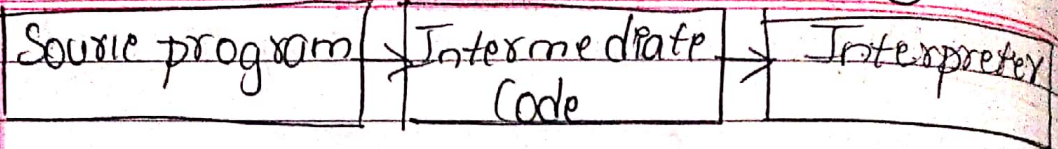 Source program
Intermediate
Code
Interpreter